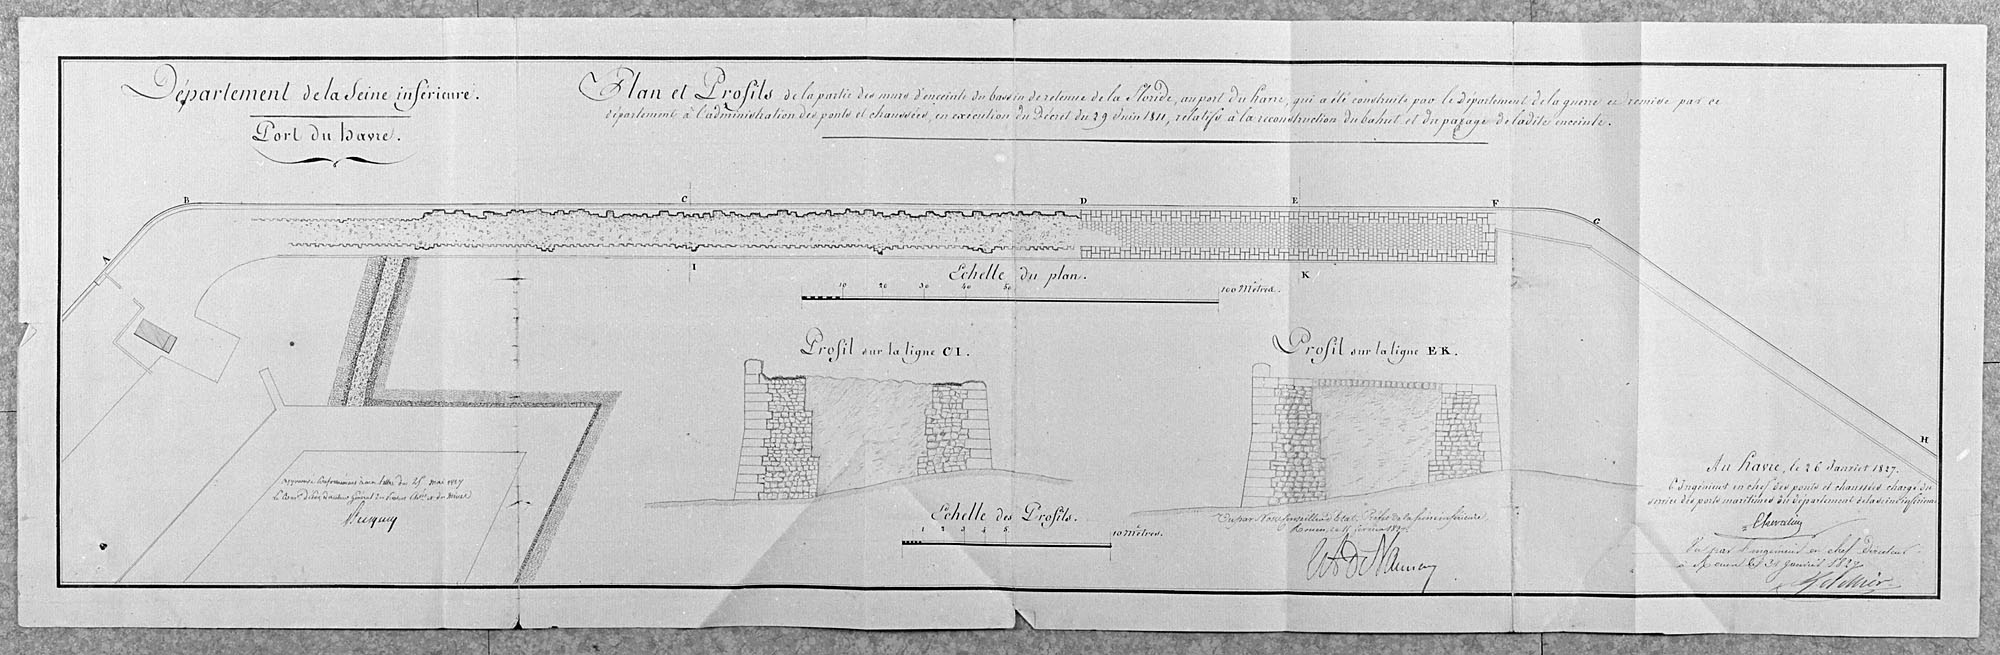 Département de la Seine inférieure.
Port du havre.
Plan et Profils de la partie des murs d'enceinte du bassin de retenue de la Floride, au port du havre, qui a été construite par le département de la guerre et remise par ce
département à l'administration des ponts et chaussées, en exécution du Décret du 29 Juin 1811, relatifs à la reconstruction du bahut et du pavage de ladite enceinte.
A
B
C
D
E
F
G
H
I
K
Echelle du plan.
10 20 30 40 50 100 Mètres.
Profil sur la ligne CI.
Profil sur la ligne EK.
Echelle des Profils.
1 2 3 4 5 10 Mètres.
à ma lettre du 25 mai 1827
Le
Vu par Nous Conseiller d'Etat, Préfet de la Seine inférieure,
Rouen, le
Au havre, le 26 Janvier 1827.
L'Ingénieur en chef des ponts et chaussées chargé du
service des ports maritimes du département de la Seine inférieure
Vu par l'ingénieur en chef Directeur
à Rouen le 31 Janvier 1827